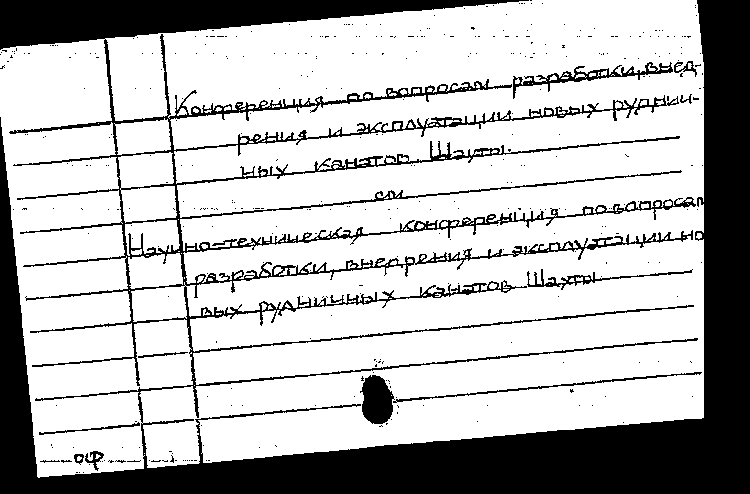 Конференция по вопросам разработки, внед-
рения и эксплуатации новых руднич-
ных канатов. Шахты.
см
Научно-техническая конференция по вопросам
разработки, внедрения и эксплуатации но
вых рудничных канатов Шахты
оф